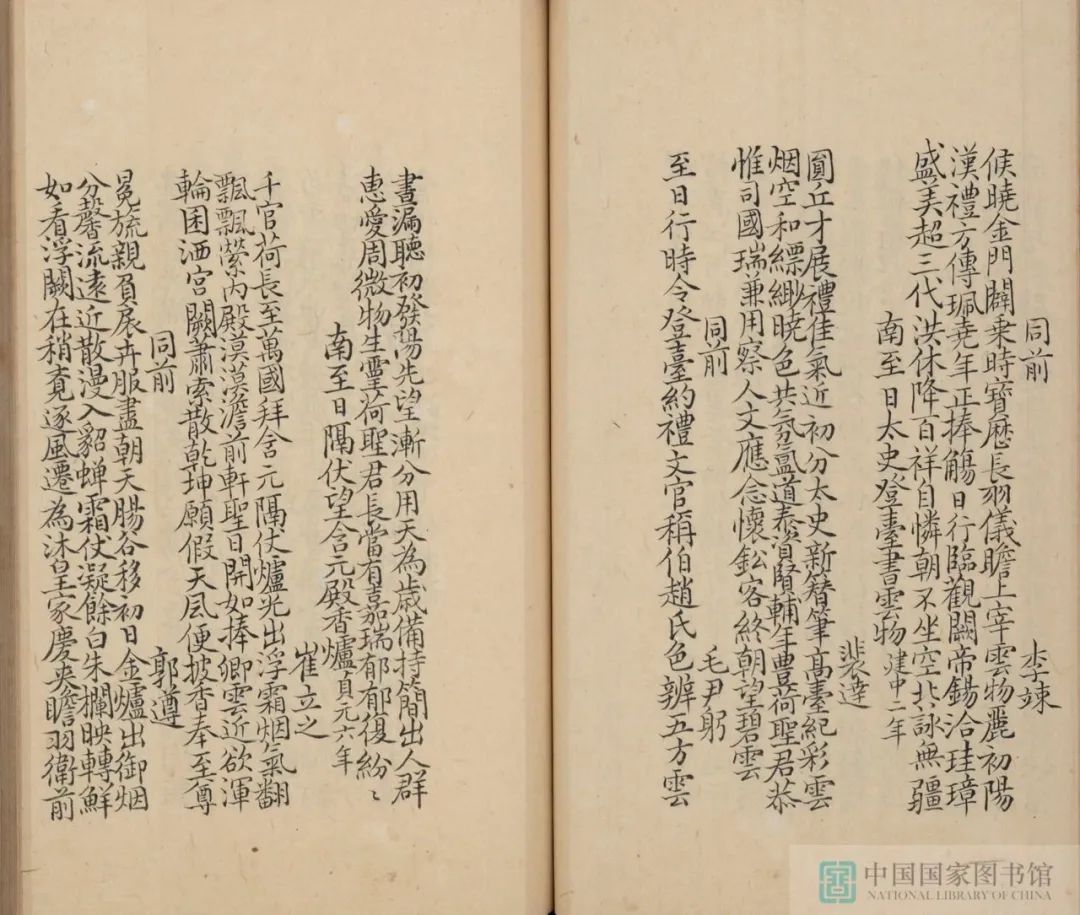 同前 李竦
候曉金門闢乗時寶曆長羽儀瞻上宰雲物麗初陽
漢禮方傳珮堯年正捧觴日行臨觀闕帝錫洽珪璋
盛美超三代洪休降百祥自憐朝不坐空此詠無疆
南至日太史登臺書雲物 建中二年 裴達
圓丘才展禮佳氣近初分太史新簪筆髙臺紀彩雲
烟空和縹緲曉色共氛氲道泰資賢輔年豊荷聖君恭
惟司國瑞兼用察人文應念懷鈆客終朝望碧雲
同前 毛尹躬
至日行時令登臺約禮文官稱伯趙氏色辨五方雲
晝漏聽初發陽光望漸分用天為歲備持簡出人群
惠愛周微物生靈荷聖君長當有嘉瑞郁郁復紛ミ
南至日隔仗望含元殿香爐 貞元六年 崔立之
千官荷長至萬國拜含元隔仗爐光出浮霜烟氣翻
飄飄縈内殿漠漠澹前軒聖日開如捧卿雲近欲渾
輪囷洒宫闕蕭索散乾坤願假天風便披香奉至尊
同前 郭遵
冕旒親負扆卉服盡朝天腸谷移初日金爐出御烟
分馨流遠近散漫入貂蟬霜仗凝餘白朱欄映轉鮮
如看浮闕在稍覔逐風遷為沐皇家慶来瞻羽衛前
中国国家图书馆
NATIONAL LIBRARY OF CHINA